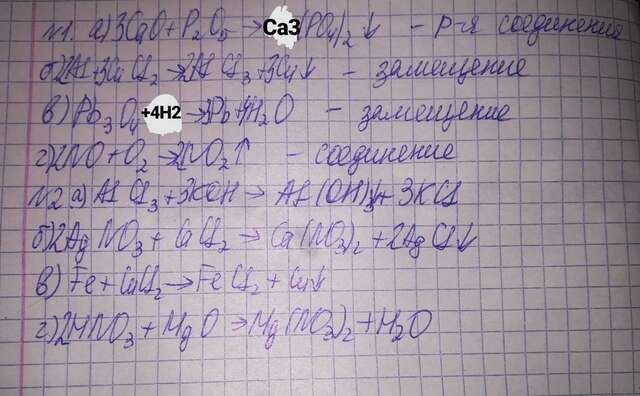 №1. а) 3CaO + P2O5 → Ca3(PO4)2↓ - р-я соединения
б) 2Al + 3CuCl2 → 2AlCl3 + 3Cu↓ - замещение
в) Pb3O4 +4H2 → 3Pb + 4H2O - замещение
г) 2NO + O2 → 2NO2↑ - соединение
№2 а) AlCl3 + 3KOH → Al(OH)3↓ + 3KCl
б) 2AgNO3 + CaCl2 → Ca(NO3)2 + 2AgCl↓
в) Fe + CuCl2 → FeCl2 + Cu↓
г) 2HNO3 + MgO → Mg(NO3)2 + H2O